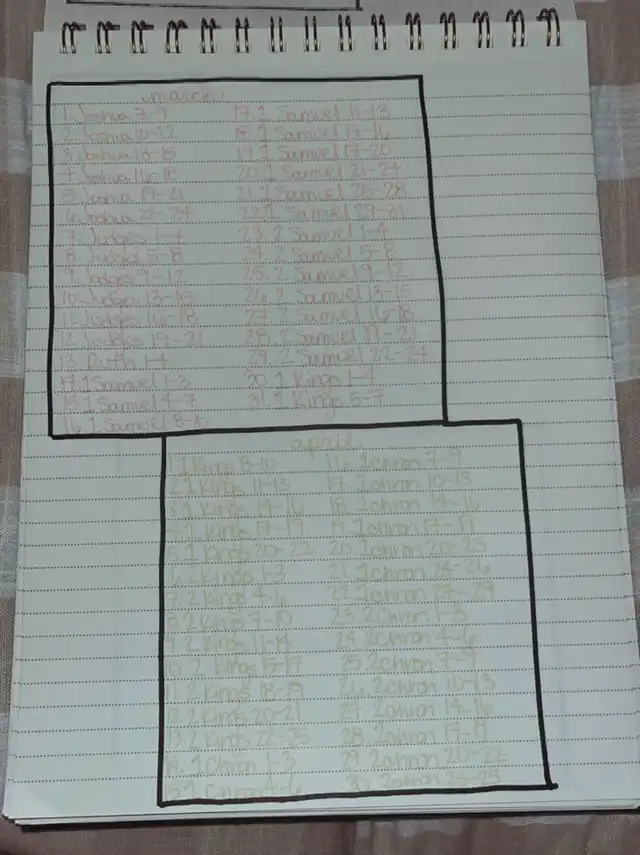 march
1. Joshua 7-9
2. Joshua 10-12
3. Joshua 13-15
4. Joshua 16-18
5. Joshua 19-21
6. Joshua 22-24
7. Judges 1-4
8. Judges 5-8
9. Judges 9-12
10. Judges 13-15
11. Judges 16-18
12. Judges 19-21
13. Ruth 1-4
14. 1 Samuel 1-3
15. 1 Samuel 4-7
16. 1 Samuel 8-10
17. 1 Samuel 11-13
18. 1 Samuel 14-16
19. 1 Samuel 17-20
20. 1 Samuel 21-24
21. 1 Samuel 25-28
22. 1 Samuel 29-31
23. 2 Samuel 1-4
24. 2 Samuel 5-8
25. 2 Samuel 9-12
26. 2 Samuel 13-15
27. 2 Samuel 16-18
28. 2 Samuel 19-21
29. 2 Samuel 22-24
30. 1 Kings 1-4
31. 1 Kings 5-7
april
1. 1 Kings 8-10
2. 1 Kings 11-13
3. 1 Kings 14-16
4. 1 Kings 17-19
5. 1 Kings 20-22
6. 2 Kings 1-3
7. 2 Kings 4-6
8. 2 Kings 7-10
9. 2 Kings 11-14
10. 2 Kings 15-17
11. 2 Kings 18-19
12. 2 Kings 20-21
13. 2 Kings 22-25
14. 1 Chron 1-3
15. 1 Chron 4-6
16. 1 chron 7-9
17. 1 chron 10-13
18. 1 chron 14-16
19. 1 chron 17-19
20. 1 chron 20-23
21. 1 chron 24-26
22. 1 chron 27-29
23. 2 Chron 1-3
24. 2 chron 4-6
25. 2 chron 7-9
26. 2 chron 10-13
27. 2 chron 14-16
28. 2 chron 17-19
29. 2 chron 20-22
30. 2 chron 23-25